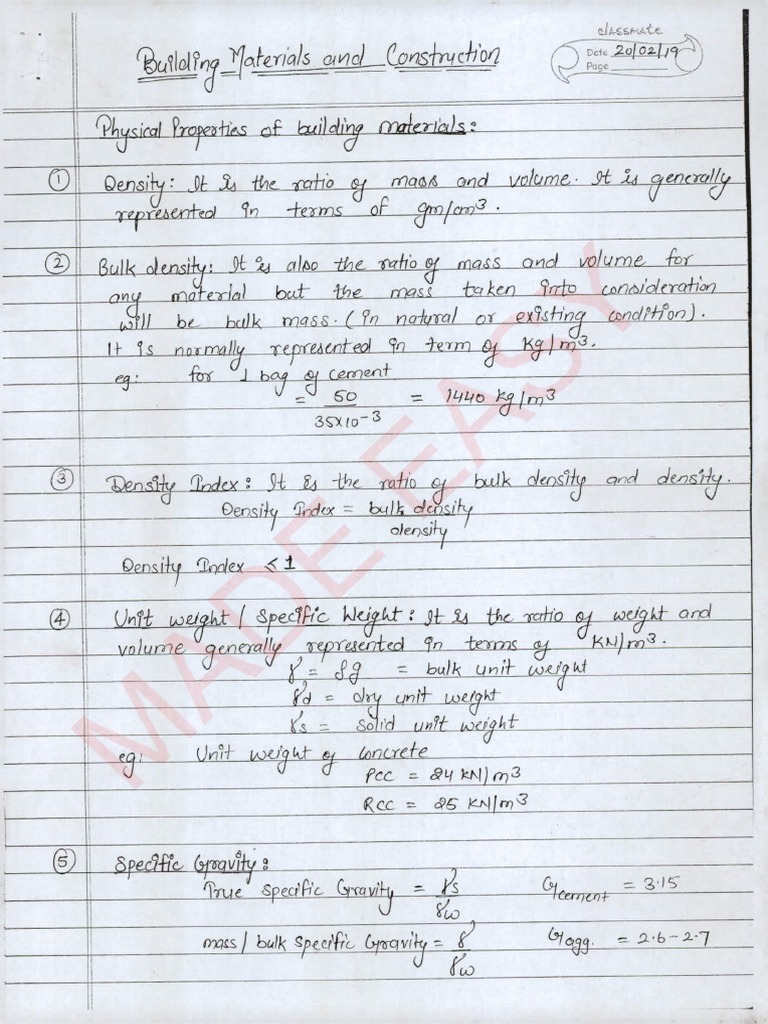 classmate
Date 20/02/19
Page
Building Materials and Construction
Physical Properties of building materials:
① Density: It is the ratio of mass and volume. It is generally
represented in terms of gm/cm³.
② Bulk density: It is also the ratio of mass and volume for
any material but the mass taken into consideration
will be bulk mass. (in natural or existing condition).
It is normally represented in term of kg/m³.
eg: for 1 bag of cement
= 50/35×10⁻³ = 1440 kg/m³
③ Density Index: It is the ratio of bulk density and density.
Density Index = bulk density/density
Density Index < 1
④ Unit weight / Specific Weight: It is the ratio of weight and
volume generally represented in terms of KN/m³.
γ = ρg = bulk unit weight
γd = dry unit weight
γs = solid unit weight
eg: Unit weight of concrete
PCC = 24 KN/m³
RCC = 25 KN/m³
⑤ Specific Gravity:
True Specific Gravity = γs/γw Gcement = 3.15
mass / bulk specific Gravity = γ/γw Gagg. = 2.6-2.7
MADE EASY